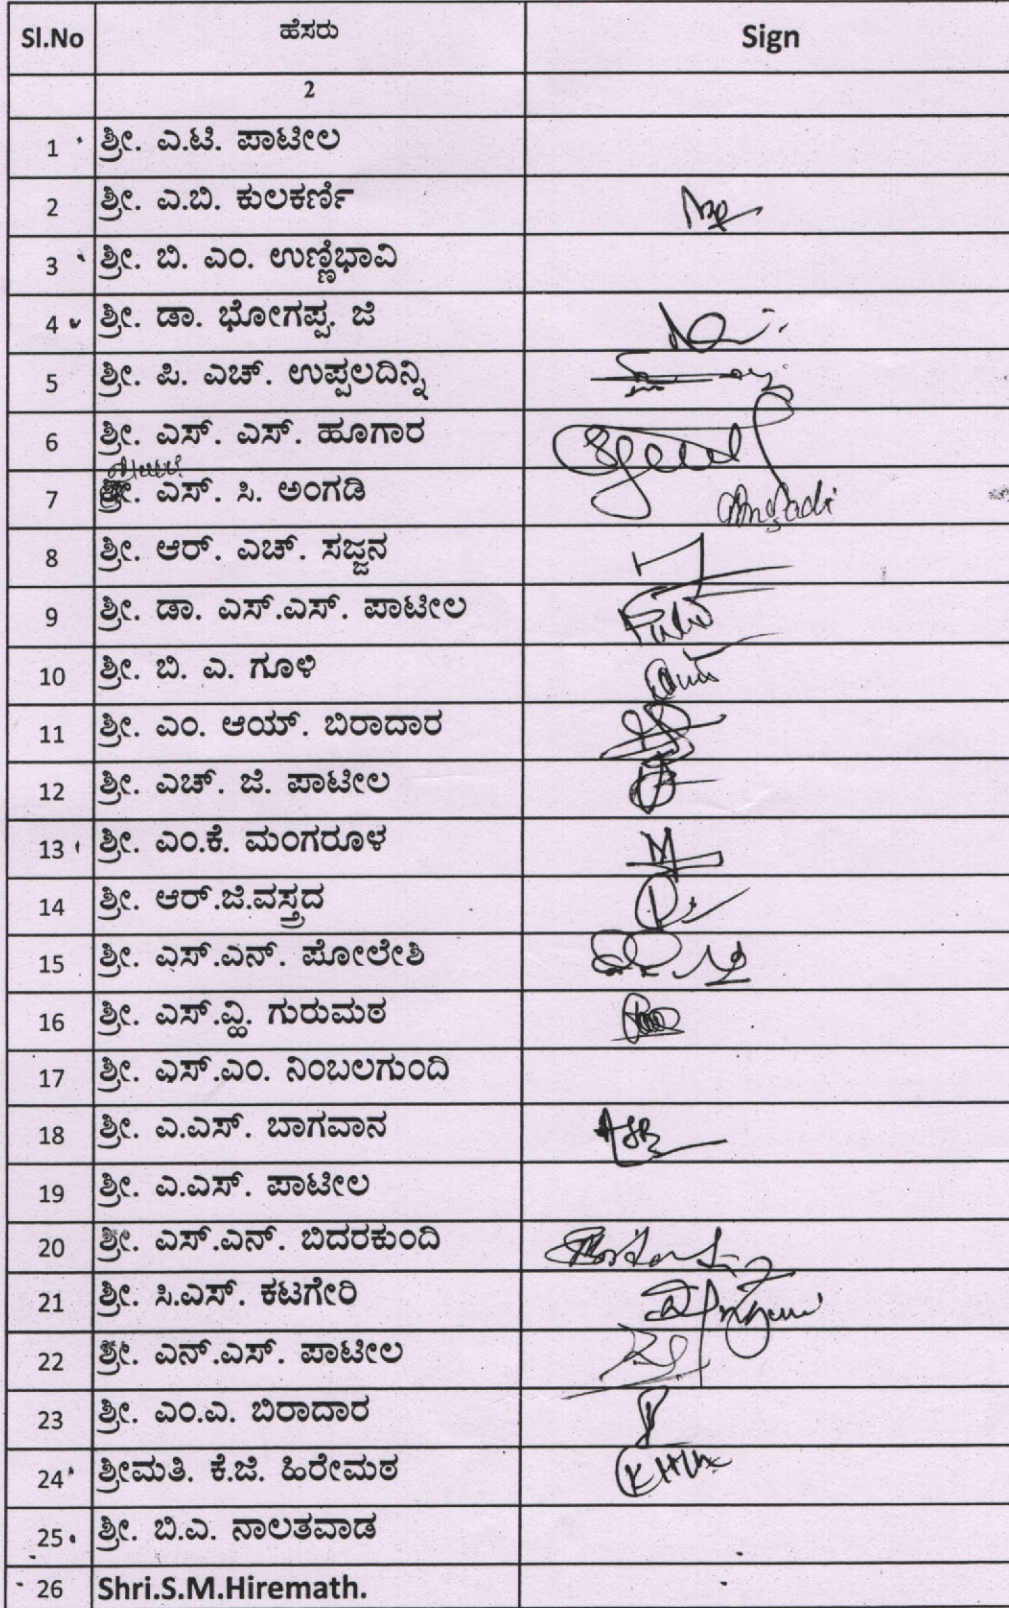 Sl.No ಹೆಸರು Sign
2
1 ಶ್ರೀ. ಎ.ಟಿ. ಪಾಟೀಲ
2 ಶ್ರೀ. ಎ.ಬಿ. ಕುಲಕರ್ಣಿ
3 ಶ್ರೀ. ಬಿ. ಎಂ. ಉಣ್ಣಿಭಾವಿ
4 ಶ್ರೀ. ಡಾ. ಭೋಗಪ್ಪ. ಜಿ
5 ಶ್ರೀ. ಪಿ. ಎಚ್. ಉಪ್ಪಲದಿನ್ನಿ
6 ಶ್ರೀ. ಎಸ್. ಎಸ್. ಹೂಗಾರ
7 ಶ್ರೀ. ಎಸ್. ಸಿ. ಅಂಗಡಿ Angadi
8 ಶ್ರೀ. ಆರ್. ಎಚ್. ಸಜ್ಜನ
9 ಶ್ರೀ. ಡಾ. ಎಸ್.ಎಸ್. ಪಾಟೀಲ
10 ಶ್ರೀ. ಬಿ. ಎ. ಗೂಳಿ
11 ಶ್ರೀ. ಎಂ. ಆಯ್. ಬಿರಾದಾರ
12 ಶ್ರೀ. ಎಚ್. ಜಿ. ಪಾಟೀಲ
13 ಶ್ರೀ. ಎಂ.ಕೆ. ಮಂಗರೂಳ
14 ಶ್ರೀ. ಆರ್.ಜಿ.ವಸ್ತ್ರದ
15 ಶ್ರೀ. ಎಸ್.ಎನ್. ಪೋಲೇಶಿ
16 ಶ್ರೀ. ಎಸ್.ವ್ಹಿ. ಗುರುಮಠ
17 ಶ್ರೀ. ಎಸ್.ಎಂ. ನಿಂಬಲಗುಂದಿ
18 ಶ್ರೀ. ಎ.ಎಸ್. ಬಾಗವಾನ
19 ಶ್ರೀ. ಎ.ಎಸ್. ಪಾಟೀಲ
20 ಶ್ರೀ. ಎಸ್.ಎನ್. ಬಿದರಕುಂದಿ
21 ಶ್ರೀ. ಸಿ.ಎಸ್. ಕಟಗೇರಿ
22 ಶ್ರೀ. ಎನ್.ಎಸ್. ಪಾಟೀಲ
23 ಶ್ರೀ. ಎಂ.ಎ. ಬಿರಾದಾರ
24 ಶ್ರೀಮತಿ. ಕೆ.ಜಿ. ಹಿರೇಮಠ
25 ಶ್ರೀ. ಬಿ.ಎ. ನಾಲತವಾಡ
26 Shri.S.M.Hiremath.